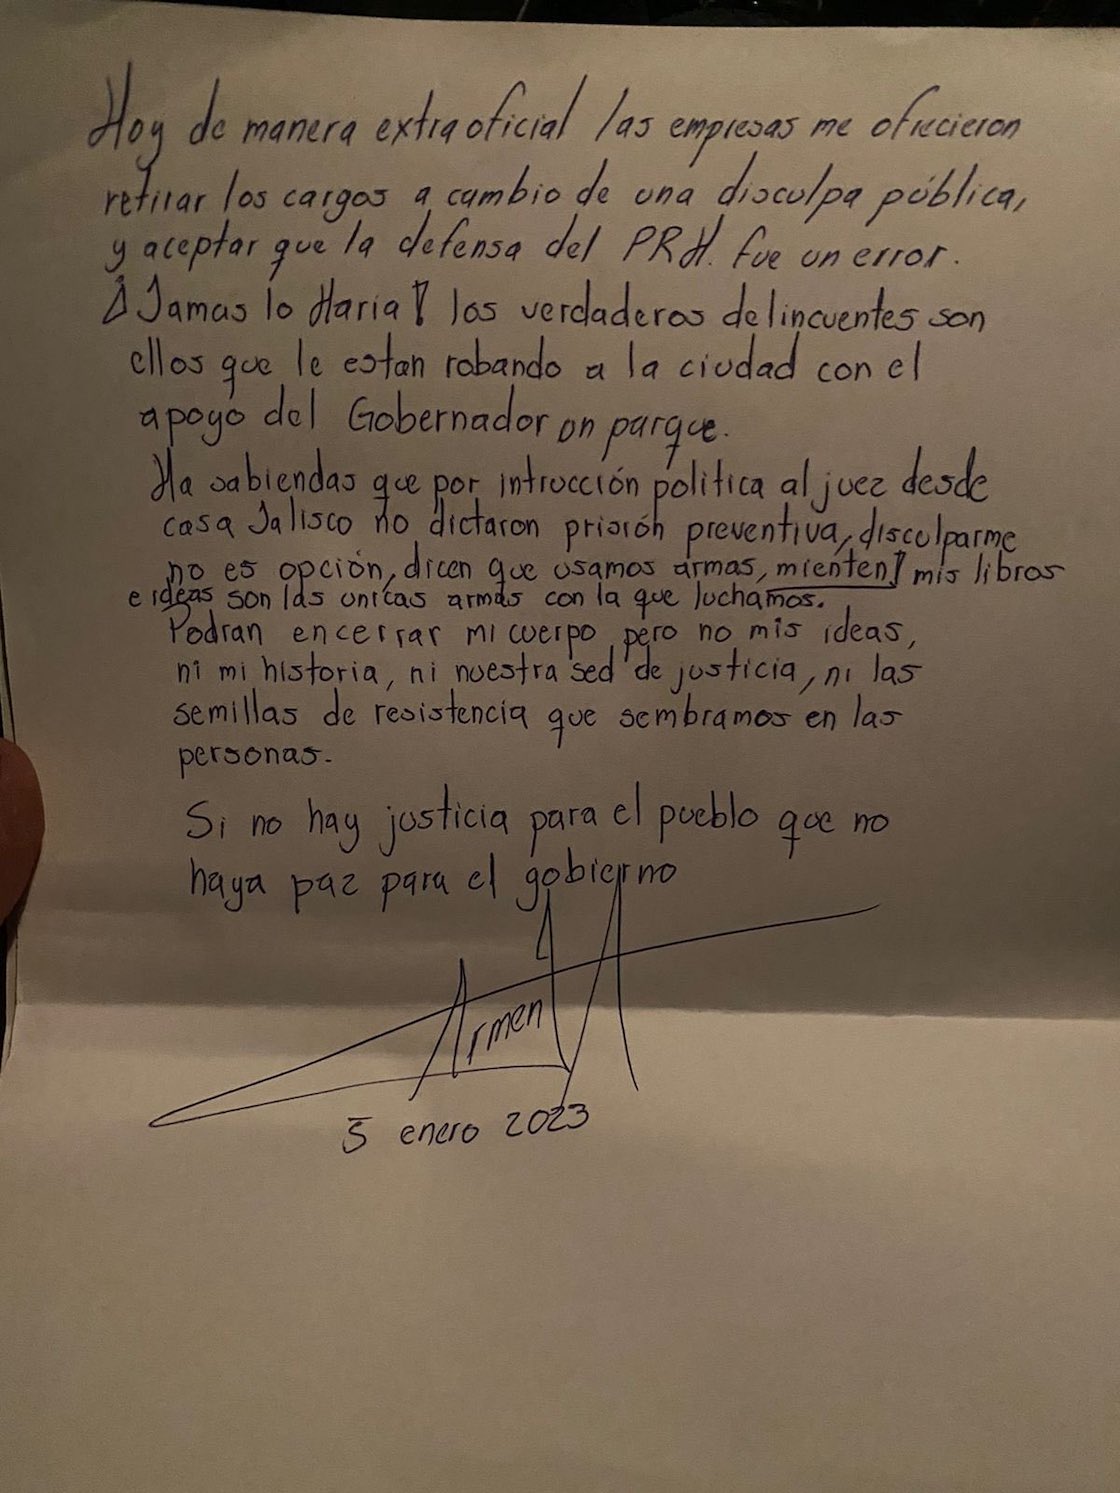 Hoy de manera extraoficial las empresas me ofrecieron
retirar los cargos a cambio de una disculpa pública,
y aceptar que la defensa del PRH. fue un error.
¡Jamas lo Haria! los verdaderos delincuentes son
ellos que le estan robando a la ciudad con el
apoyo del Gobernador un parque.
Ha sabiendas que por intrucción politica al juez desde
casa Jalisco no dictaron prisión preventiva, disculparme
no es opción, dicen que usamos armas, mienten! mis libros
e ideas son las unicas armas con la que luchamos.
Podran encerrar mi cuerpo pero no mis ideas,
ni mi historia, ni nuestra sed de justicia, ni las
semillas de resistencia que sembramos en las
personas.
Si no hay justicia para el pueblo que no
haya paz para el gobierno
Armen
5 enero 2023